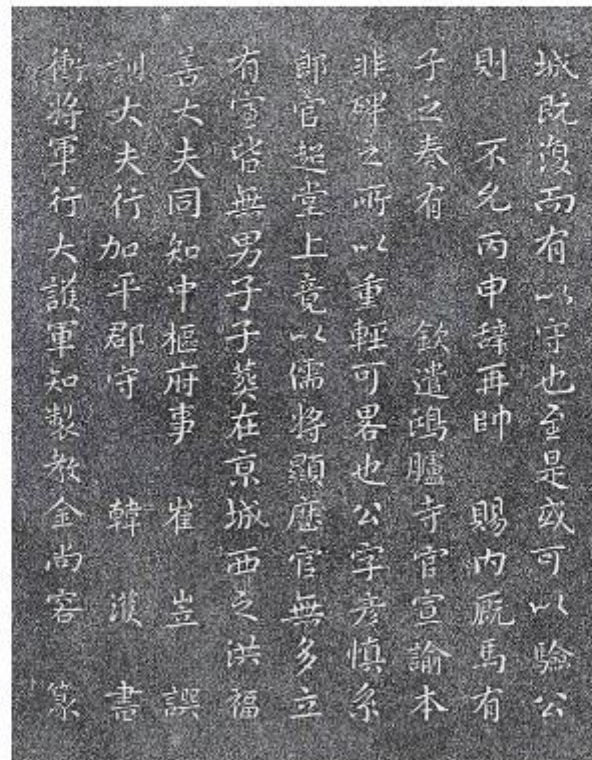 城既復而有以守也至是或可以驗公
則 不允丙申辭再帥 賜內厩馬有
子之奏有 欽遣鴻臚寺官宣諭本
非碑之所以重輕可畧也公字彦愼系
郎官超堂上竟以儒將顯歷官無多立
有宣皆無男子子葬在京城西之洪福
善大夫同知中樞府事 崔岦 譔
訓大夫行加平郡守 韓濩 書
衝將軍行大護軍知製教金尚容 篆